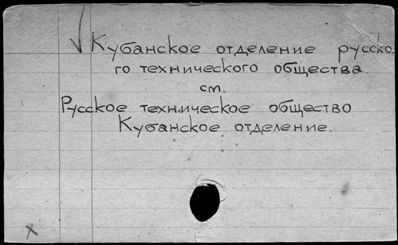 Кубанское отделение русско
го технического общества
см.
Русское техническое общество
Кубанское отделение.
x